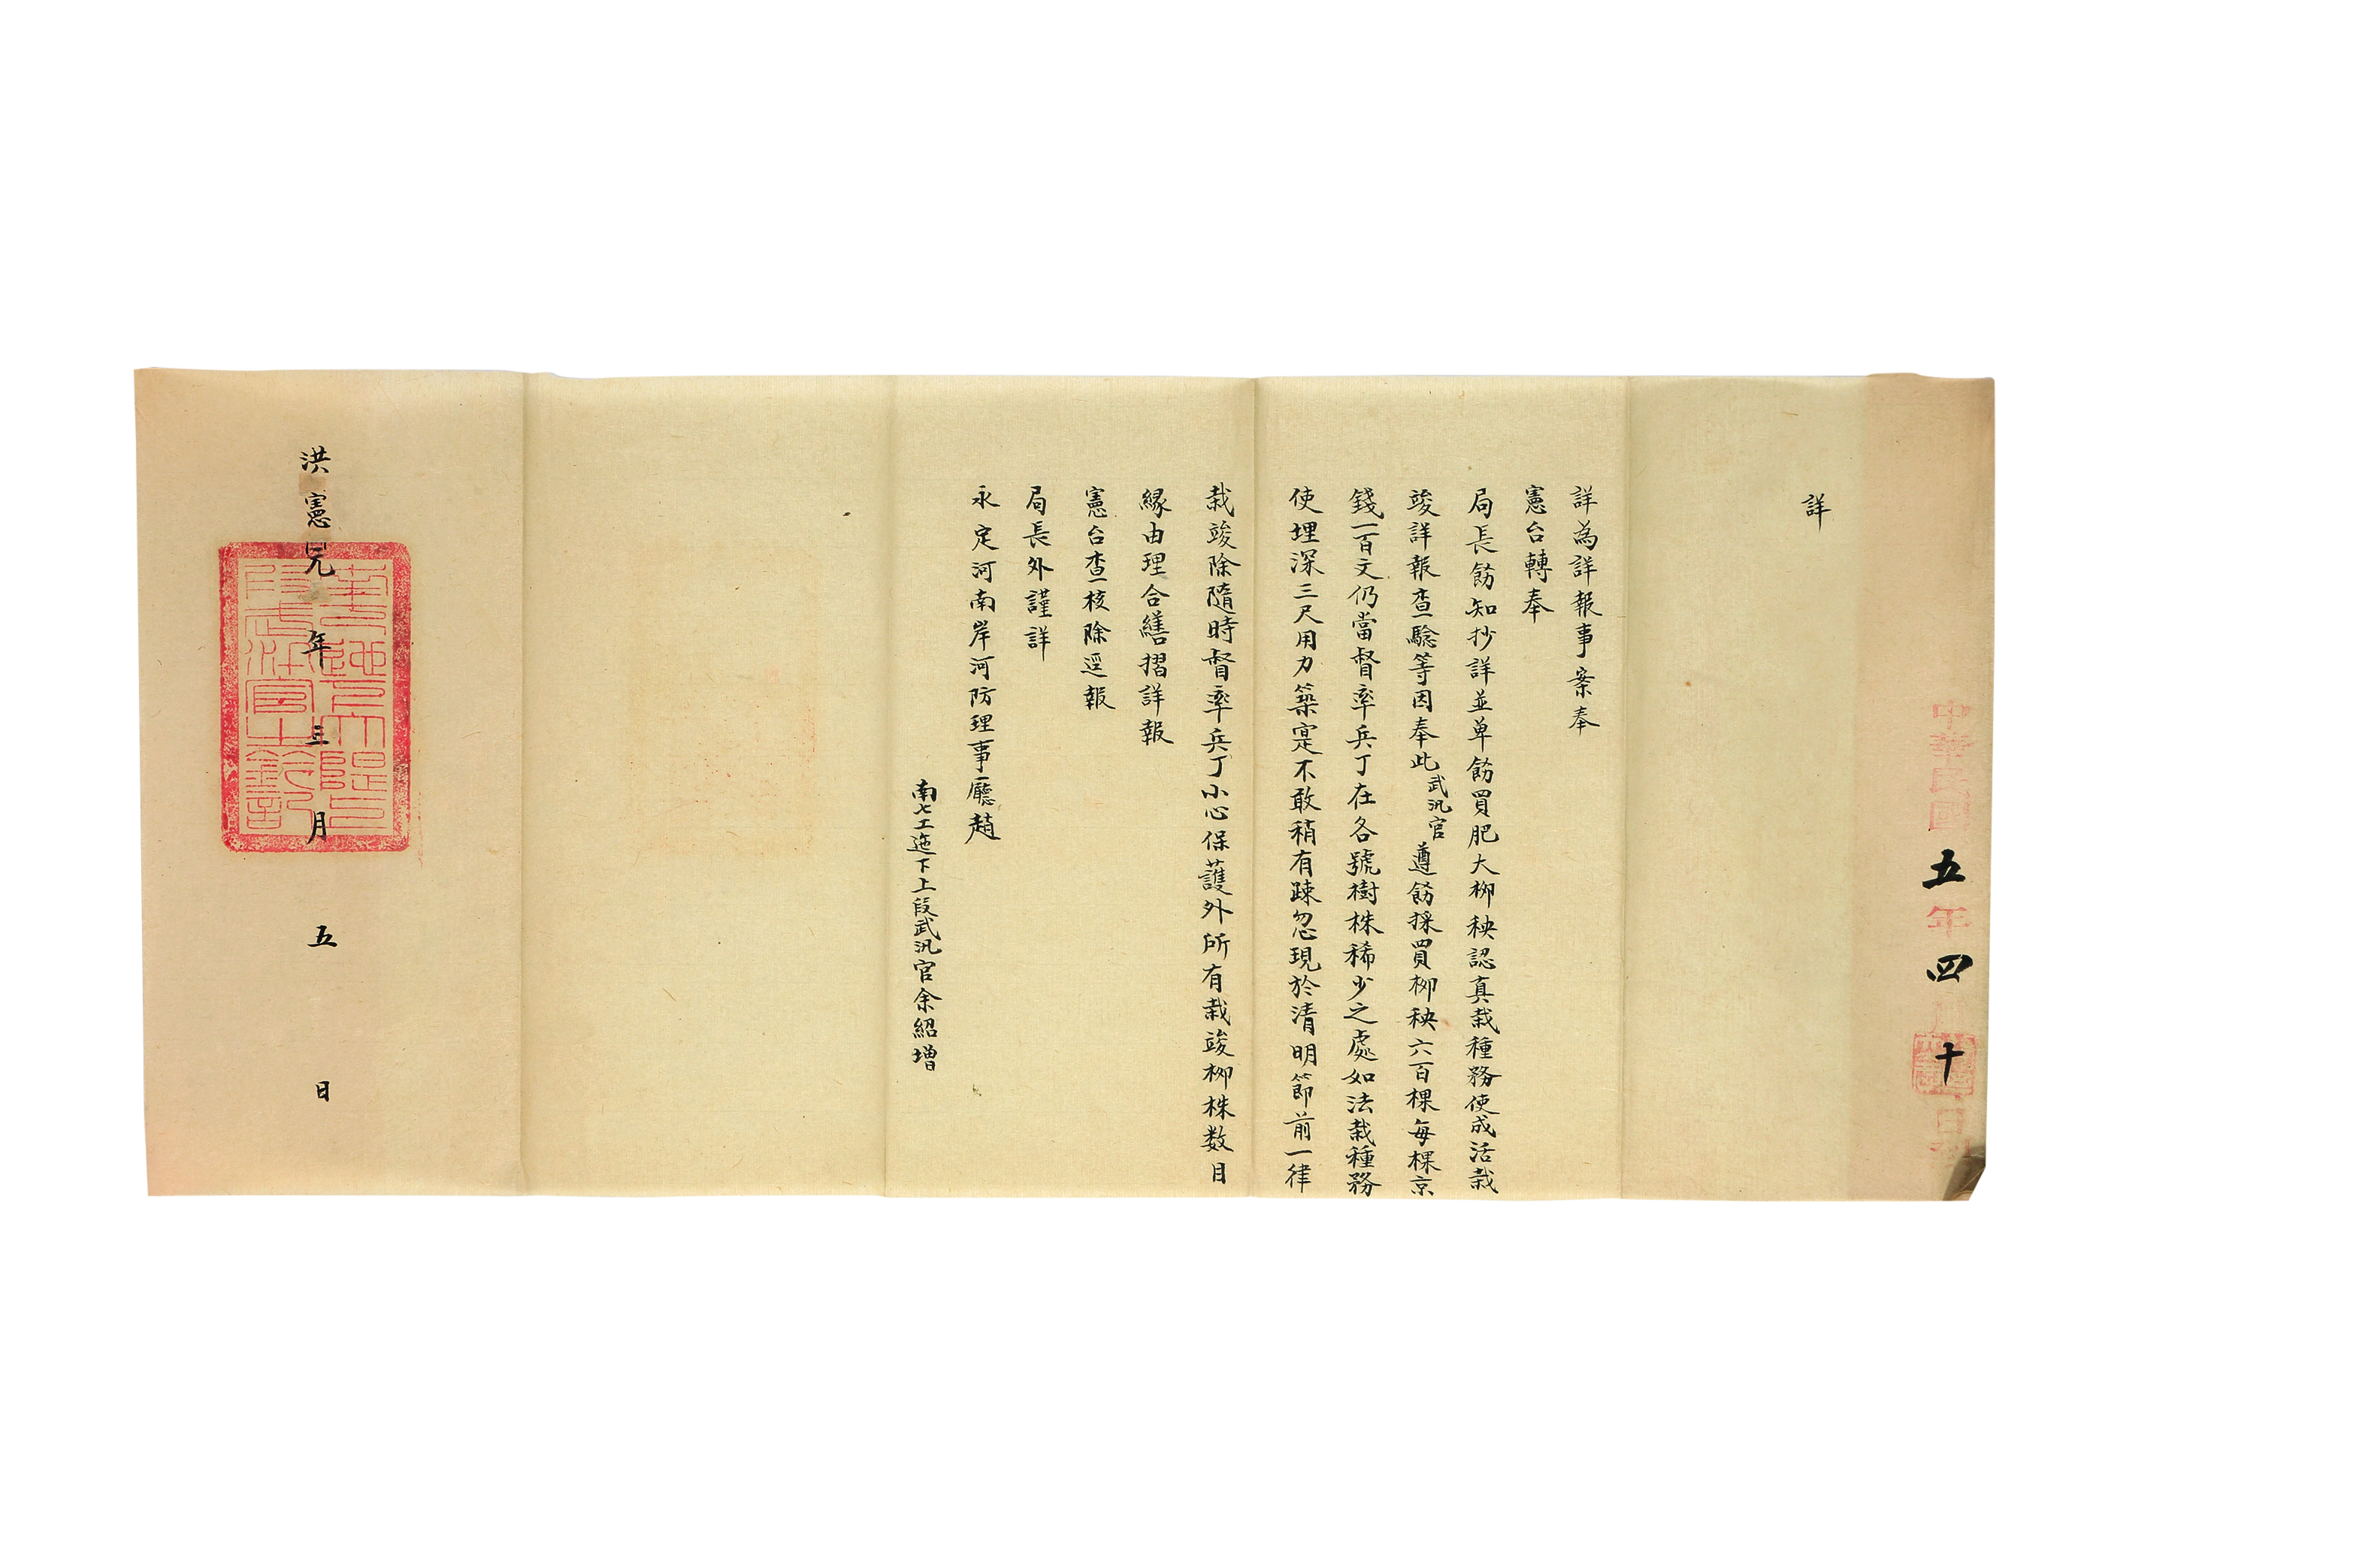 中華民國五年四月十日到
詳
詳為詳報事案奉
憲台轉奉
局長飭知抄詳並单飭買肥大柳秧認真栽種務使成活栽
竣詳報查驗等因奉此武汛官遵飭採買柳秧六百棵每棵京
錢一百文仍當督率兵丁在各號樹株稀少之處如法栽種務
使埋深三尺用力築寔不敢稍有疎忽現於清明節前一律
栽竣除隨時督率兵丁小心保護外所有栽竣柳株数目
緣由理合繕摺詳報
憲台查核除逕報
局長外謹詳
永定河南岸河防理事廳趙
南七工迤下上段武汛官余紹增
洪憲元年三月五日